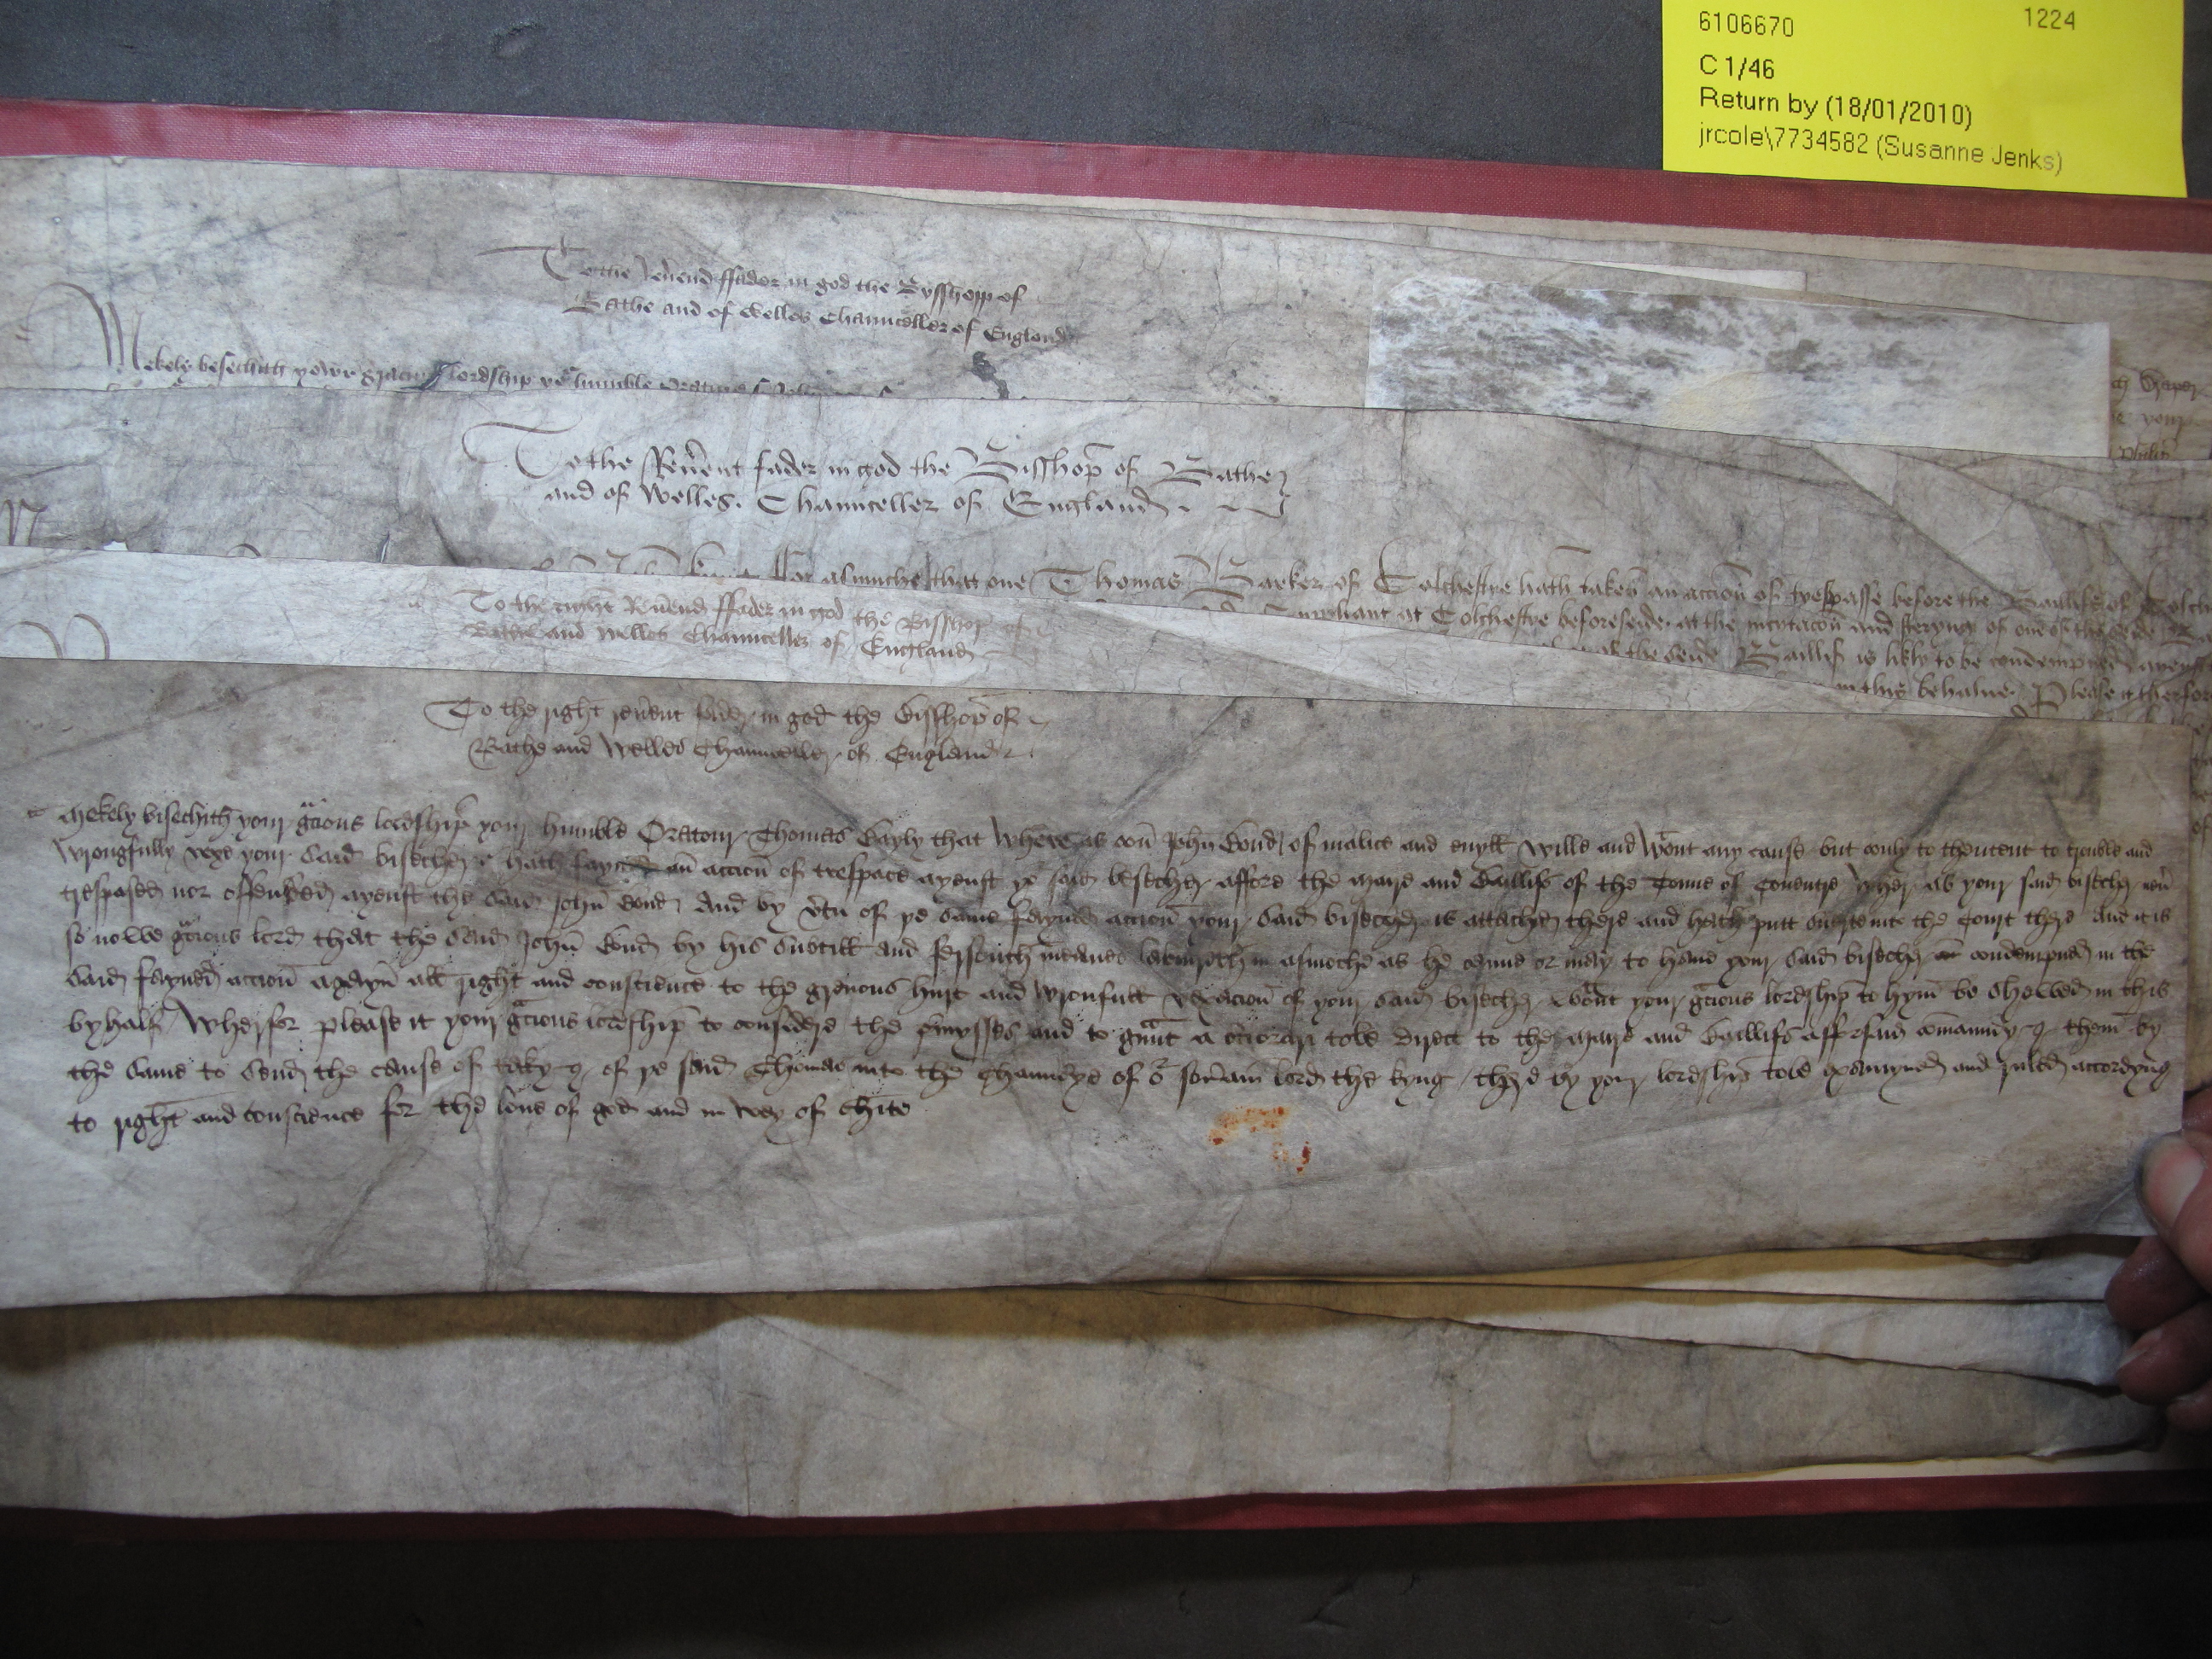 6106670 1224
C 1/46
Return by (18/01/2010)
jrcole\7734582 (Susanne Jenks)
To the Reuend ffader in god the Bysshopp of
Bathe and of Welles Chaunceller of England
Mekely besechith yowr gracious lordship yor humble
To the Reuent fader in god the Bisshop of Bathe
and of Welles. Chaunceller of England
for asmuche that one Thomas Barker of Colchestre hath taken an accion of trespasse before the Baillifs of
Suppliant at Colchestre beforeseide. at the and of one of the seide
the seide Baillif is likly to be condempned ayenst
in this behalue. Please it therfor
To the right Reuend ffader in god the Bisshop of
Bathe and Welles Chaunceller of England
To the right reuent fader in god the Bisshop of
Bathe and Welles Chaunceller of England
Mekely bisechith your gracious lordship your humble Oratour Thomas Bayly that where as oon John Bond of malice and euyll wille and wout any cause but oonly to thentent to trouble and
wrongfully vexe your said bisecher hath fayned an accion of trespace ayenst ye said besecher affore the maire and Baillifs of the Toune of Couentre wher as your said bisecher neu
trespased nor offended ayenst the said John Bond And by vtu of ye same fayned accion your said bisecher is attached there and hath putt suerte into the court there And it is
so nowe gracious lord that the said John Bond by his subtill and meanes laboureth in asmoche as he canne or may to haue your said bisecher condempned in the
said fayned accion agayn all right and conscience to the greuous hurt and wronfull vexacion of your said bisecher wout your gracious lordship to hym be shewed in this
byhalf Wherfor please it your gracious lordship to considere the pmysses and to graunt a cerciorari tobe direct to the maire and Baillifs afforsaid comaundyng them by
the same to send the cause of takyng of ye said Thomas into the Chauncye of or souain lord the kyng there by your lordship tobe examyned and ruled accordyng
to right and conscience for the loue of god and in wey of chite